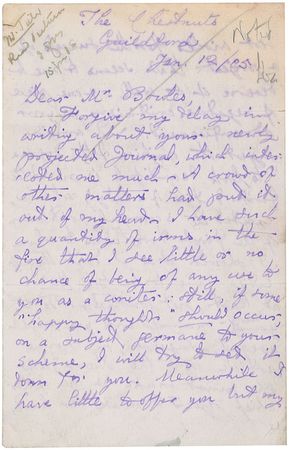 The Chestnuts
Guildford
Noted
Jan. 12/85
Dear Mr.
Forgive my delay in
writing about your newly
projected Journal, which inter-
ested me much. A crowd of
other matters had put it
out of my head. I have such
a quantity of irons in the
fire that I see little or no
chance of being of any use to
you as a writer: still, if some
"happy thoughts" should occur,
on a subject germane to your
scheme, I will try to set it
down for you. Meanwhile I
have little to offer you but my